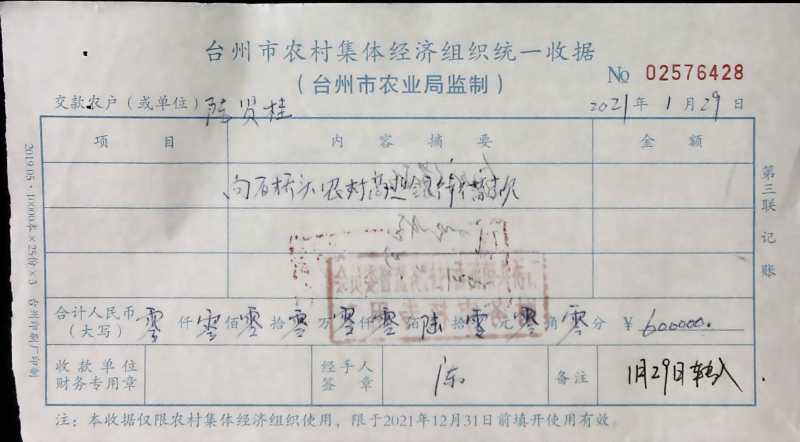 台州市农村集体经济组织统一收据
（台州市农业局监制）
No 02576428
交款农户（或单位）陈贤桂
2021年1月29日
项目 内容摘要 金额
向石桥头农村商业银行
合计人民币（大写）零仟零佰零拾零万零仟零佰陆拾零元零角零分 ¥ 600000.
收款单位财务专用章 经手人签章 备注 1月29日转入
注：本收据仅限农村集体经济组织使用，限于2021年12月31日前填开使用有效。
第三联 记账
2019.05·10000本×25份×3 台州印刷厂印制